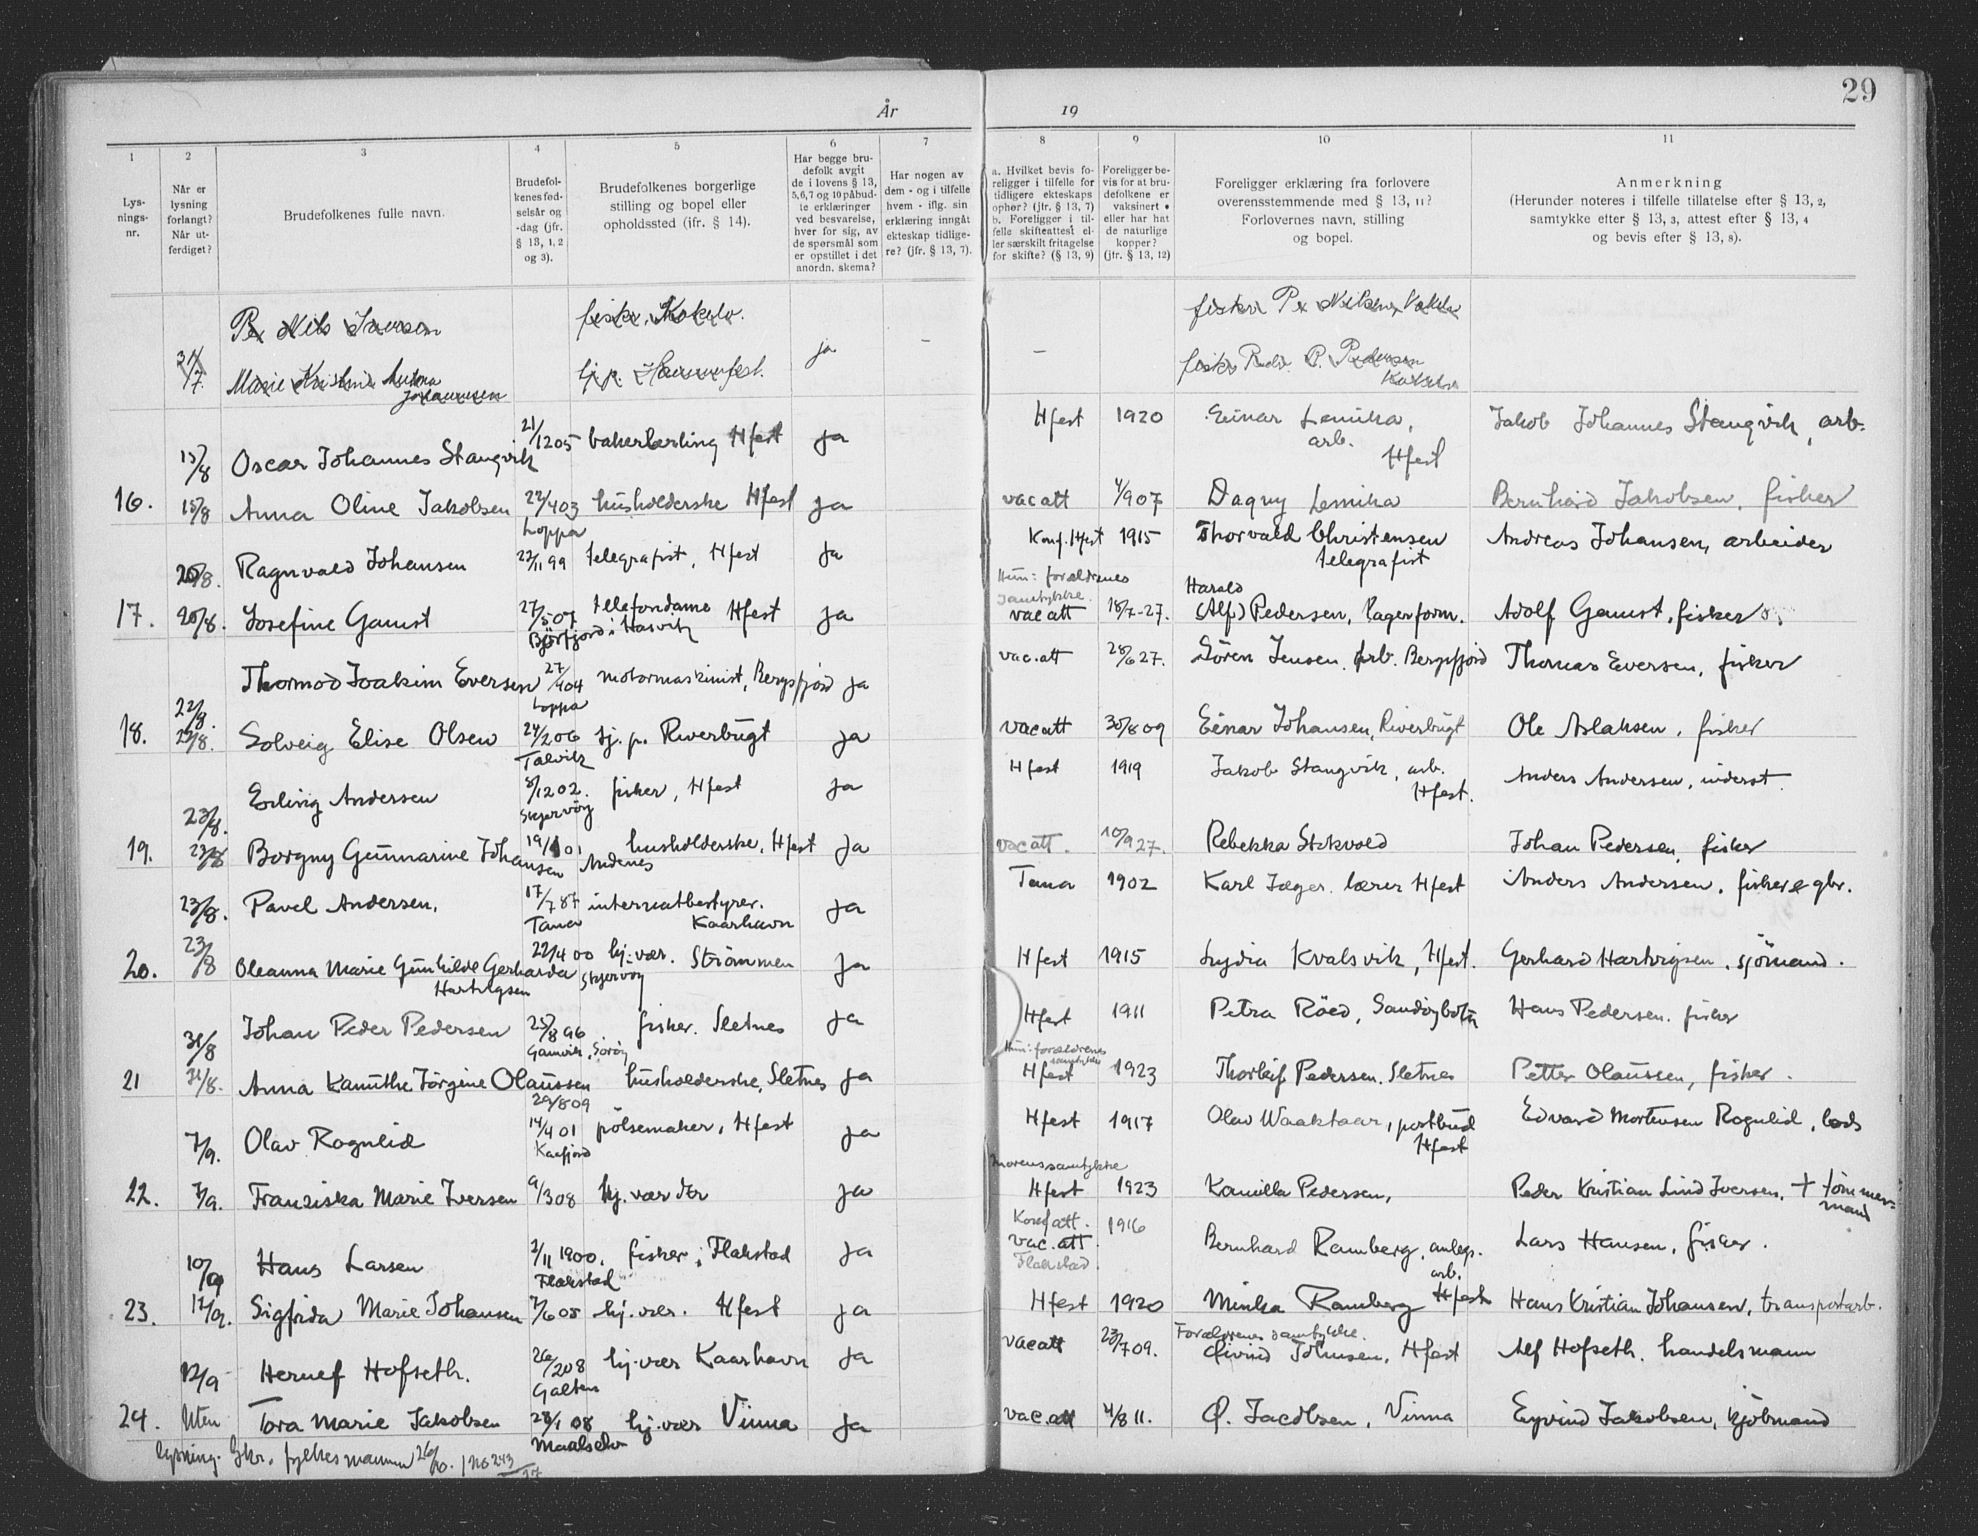 29
År
19
1
2
3
4
5
6
7
8
9
10
11
Lys-
nings-
nr.
Når er
lysning
forlangt?
Når ut-
ferdiget?
Brudefolkenes fulle navn.
Brudefol-
kenes fød-
selsår og
-dag (jfr.
§ 13, 1, 2
og 3).
Brudefolkenes borgerlige
stilling og bopel eller
opholdssted (ifr. § 14).
Har begge bru-
defolk avgit
de i lovens § 13,
5,6,7 og 10 påbud-
te erklæringer
ved besvarelse,
hver for sig, av
de spørsmål som
er opstillet i det
anordn. skema?
Har nogen av
dem - og i tilfelle
hvem - iflg. sin
erklæring inngått
ekteskap tidlige-
re? (jfr. § 13, 7).
a. Hvilket bevis fo-
religger i tilfelle for
tidligere ekteskaps
ophør? (jfr. § 13, 7)
b. Foreligger i til-
felle skifteattest el-
ler særskilt fritagelse
for skifte? (§ 13, 9)
Foreligger be-
vis for at bru-
defolkene er
vaksinert •
eller har hat
de naturlige
kopper?
(jfr. § 13, 12)
Foreligger erklæring fra forlovere
overensstemmende med § 13, 11?
Forlovernes navn, stilling
og bopel.
Anmerkning
(Herunder noteres i tilfelle tillatelse efter § 13, 2,
samtykke efter § 13, 3, attest efter § 13, 4
og bevis efter § 13, 8).
Per Nils Iversen fisker, Kokelv. fisker Per Nilsen, Kokelv
31/7. Marie Kristine Antona Johannesen hj.p. Hammerfest. ja - - fisker Peder P. Pedersen Kokelv
15/8 Oscar Johannes Stangvik 21/1205 bakerlærling Hfest ja Hfest 1920 Einar Lemika, arb. Hfest Jakob Johannes Stangvik, arb.
16. 15/8 Anna Oline Jakobsen 22/403 Loppa husholderske Hfest ja vacatt 4/907 Dagny Lemika Bernhard Jakobsen, fisker
20/8. Ragnvald Johansen 22/11 99 telegrafist, Hfest ja Konf. Hfest 1915 Thorvald Christensen telegrafist Andreas Johansen, arbeider
17. 20/8. Josefine Gamst 27/507 Björfjord i Hasvik telefondame Hfest ja Hun: forældrenes samtykke. vacatt 18/7-27. Harald (Alf) Pedersen, lagerform. Adolf Gamst, fisker
22/8. Thormod Joakim Eversen 27/404 Loppa motormaskinist, Bergsfjord ja vac.att 28/627. Sören Jensen, arb. Bergsfjord Thomas Eversen, fisker
18. 22/8. Solveig Elise Olsen 24/206 Talvik hj. p. Riverbugt ja vacatt 30/809 Einar Johansen, Riverbugt Ole Aslaksen, fisker
23/8. Erling Andersen 8/1202. Skjervöy fisker, Hfest ja Hfest 1919 Jakob Stangvik, arb. Hfest. Anders Andersen, inderst.
19. 23/8 Borgny Gunnarine Johansen 19/101 Andenes husholderske, Hfest ja vacatt. 10/927. Rebekka Stokvold Johan Pedersen, fisker
23/8. Pavel Andersen, 17/787 Tana internatbestyrer. Kaarhavn ja Tana 1902 Karl Jæger, lærer Hfest Anders Andersen, fisker & gbr.
20. 23/8 Oleanna Marie Gunhilde Gerharda Hartvigsen 22/400 Skjervöy hj.-vær. Strömmen ja Hfest 1915 Lydia Kvalsvik, Hfest. Gerhard Hartvigsen, sjömand.
31/8 Johan Peder Pedersen 25/896 Gamvik, Söröy fisker. Sletnes ja Hfest 1911 Petra Röed, Sandöybotn Hans Pedersen. fisker
21 31/8. Anna Kanuthe Jörgine Olaussen 29/809 husholderske, Sletnes ja Hun: forældrenes samtykke Hfest 1923 Thorleif Pedersen. Sletnes Petter Olaussen, fisker.
7/9. Olav Rognlid 14/401 Kaafjord pölsemaker, Hfest ja Hfest 1917 Olav Waaktaar, postbud Hfest Edvard Mortensen Rognlid, lods
22. 7/9. Franziska Marie Iversen 9/308 hj. værder ja Morens samtykke Hfest 1923 Kamilla Pedersen, Peder Kristian Lind Iversen, + tömmermand
10/9 Hans Larsen 2/11 1900. Flakstad fisker, Flakstad ja Konf att. vac. att. Flakstad 1916 Bernhard Ramberg, anlegs. arb. Hfest Lars Hansen, fisker.
23. 12/9. Sigfrida Marie Johansen 2/605 hj.-vær. Hfest ja Hfest 1920 Minka Ramberg Hans Kristian Johansen, transportarb.
12/9 Herlef Hofseth. 26/208 Galten hj-vær Kaarhavn ja vacatt 23/709. Forældrenes samtykke. Øivind Johnsen, Hfest Alf Hofseth. handelsmann
24. Uten Tora Marie Jakobsen 28/108 Maalselv hj-vær Vinna ja vac.att 4/811. O. Jacobsen, Vinna Eyvind Jakobsen, kjöbmand
lysning. Skr. fylkesmannen 26/10. 1 No 243/27